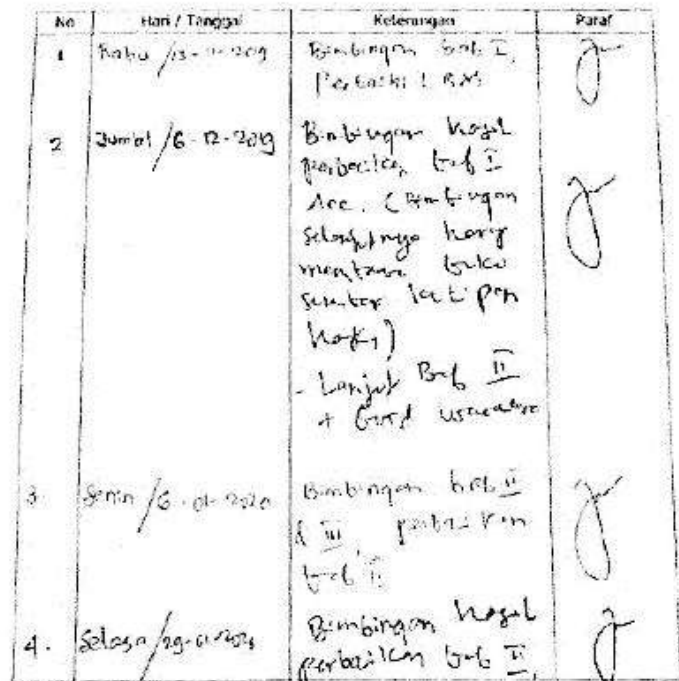 No Hari / Tanggal Keterangan Paraf
1 Rabu /13-11-2019 Bimbingan bab I,
Perbaiki !
2 Jumat /6-12-2019 Bimbingan hasil
perbaikan bab I
Acc. (Bimbingan
selanjutnya harap
membawa buku
sumber kutipan
- Lanjut Bab II
+
3. Senin /6-01-2020 Bimbingan bab II
& III, perbaikan
bab II
4. Selasa / Bimbingan hasil
perbaikan bab II,